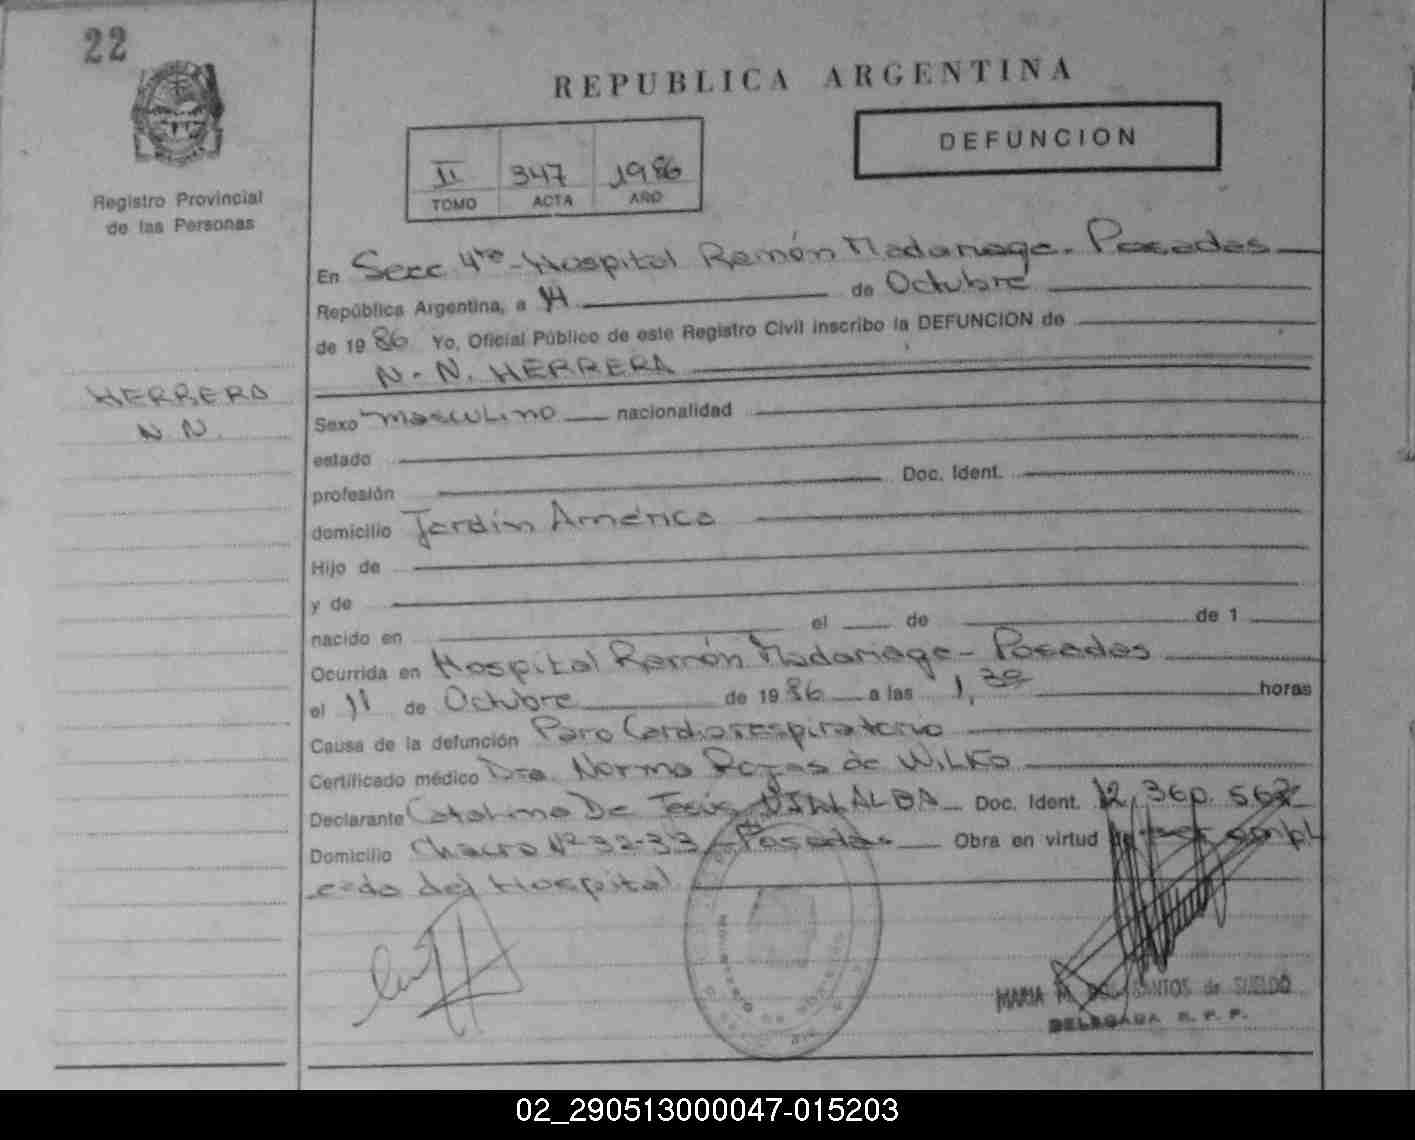 22
REPUBLICA ARGENTINA
DEFUNCION
II 347 1986
TOMO ACTA AÑO
Registro Provincial
de las Personas
HERRERA
N. N.
En Secc 4ta - Hospital Ramón Madariaga - Posadas
República Argentina, a 14 de Octubre
de 19 86 Yo, Oficial Público de este Registro Civil inscribo la DEFUNCION de
N. N. HERRERA
Sexo masculino nacionalidad
estado
profesión Doc. Ident.
domicilio Jardín América
Hijo de
y de
nacido en el de de 1
Ocurrida en Hospital Ramón Madariaga - Posadas
el 11 de Octubre de 19 86 a las 1,30 horas
Causa de la defunción Paro Cardiorespiratorio
Certificado médico Dra. Norma Rojas de WILKO
Declarante Catalina De Jesús VILLALBA Doc. Ident. 12,360.562
Domicilio Chacra Nº 32-33 - Posadas Obra en virtud de ser empl
eada del Hospital
MARIA M. DOS SANTOS de SUELDO
DELEGADA R. P. P.
02_290513000047-015203